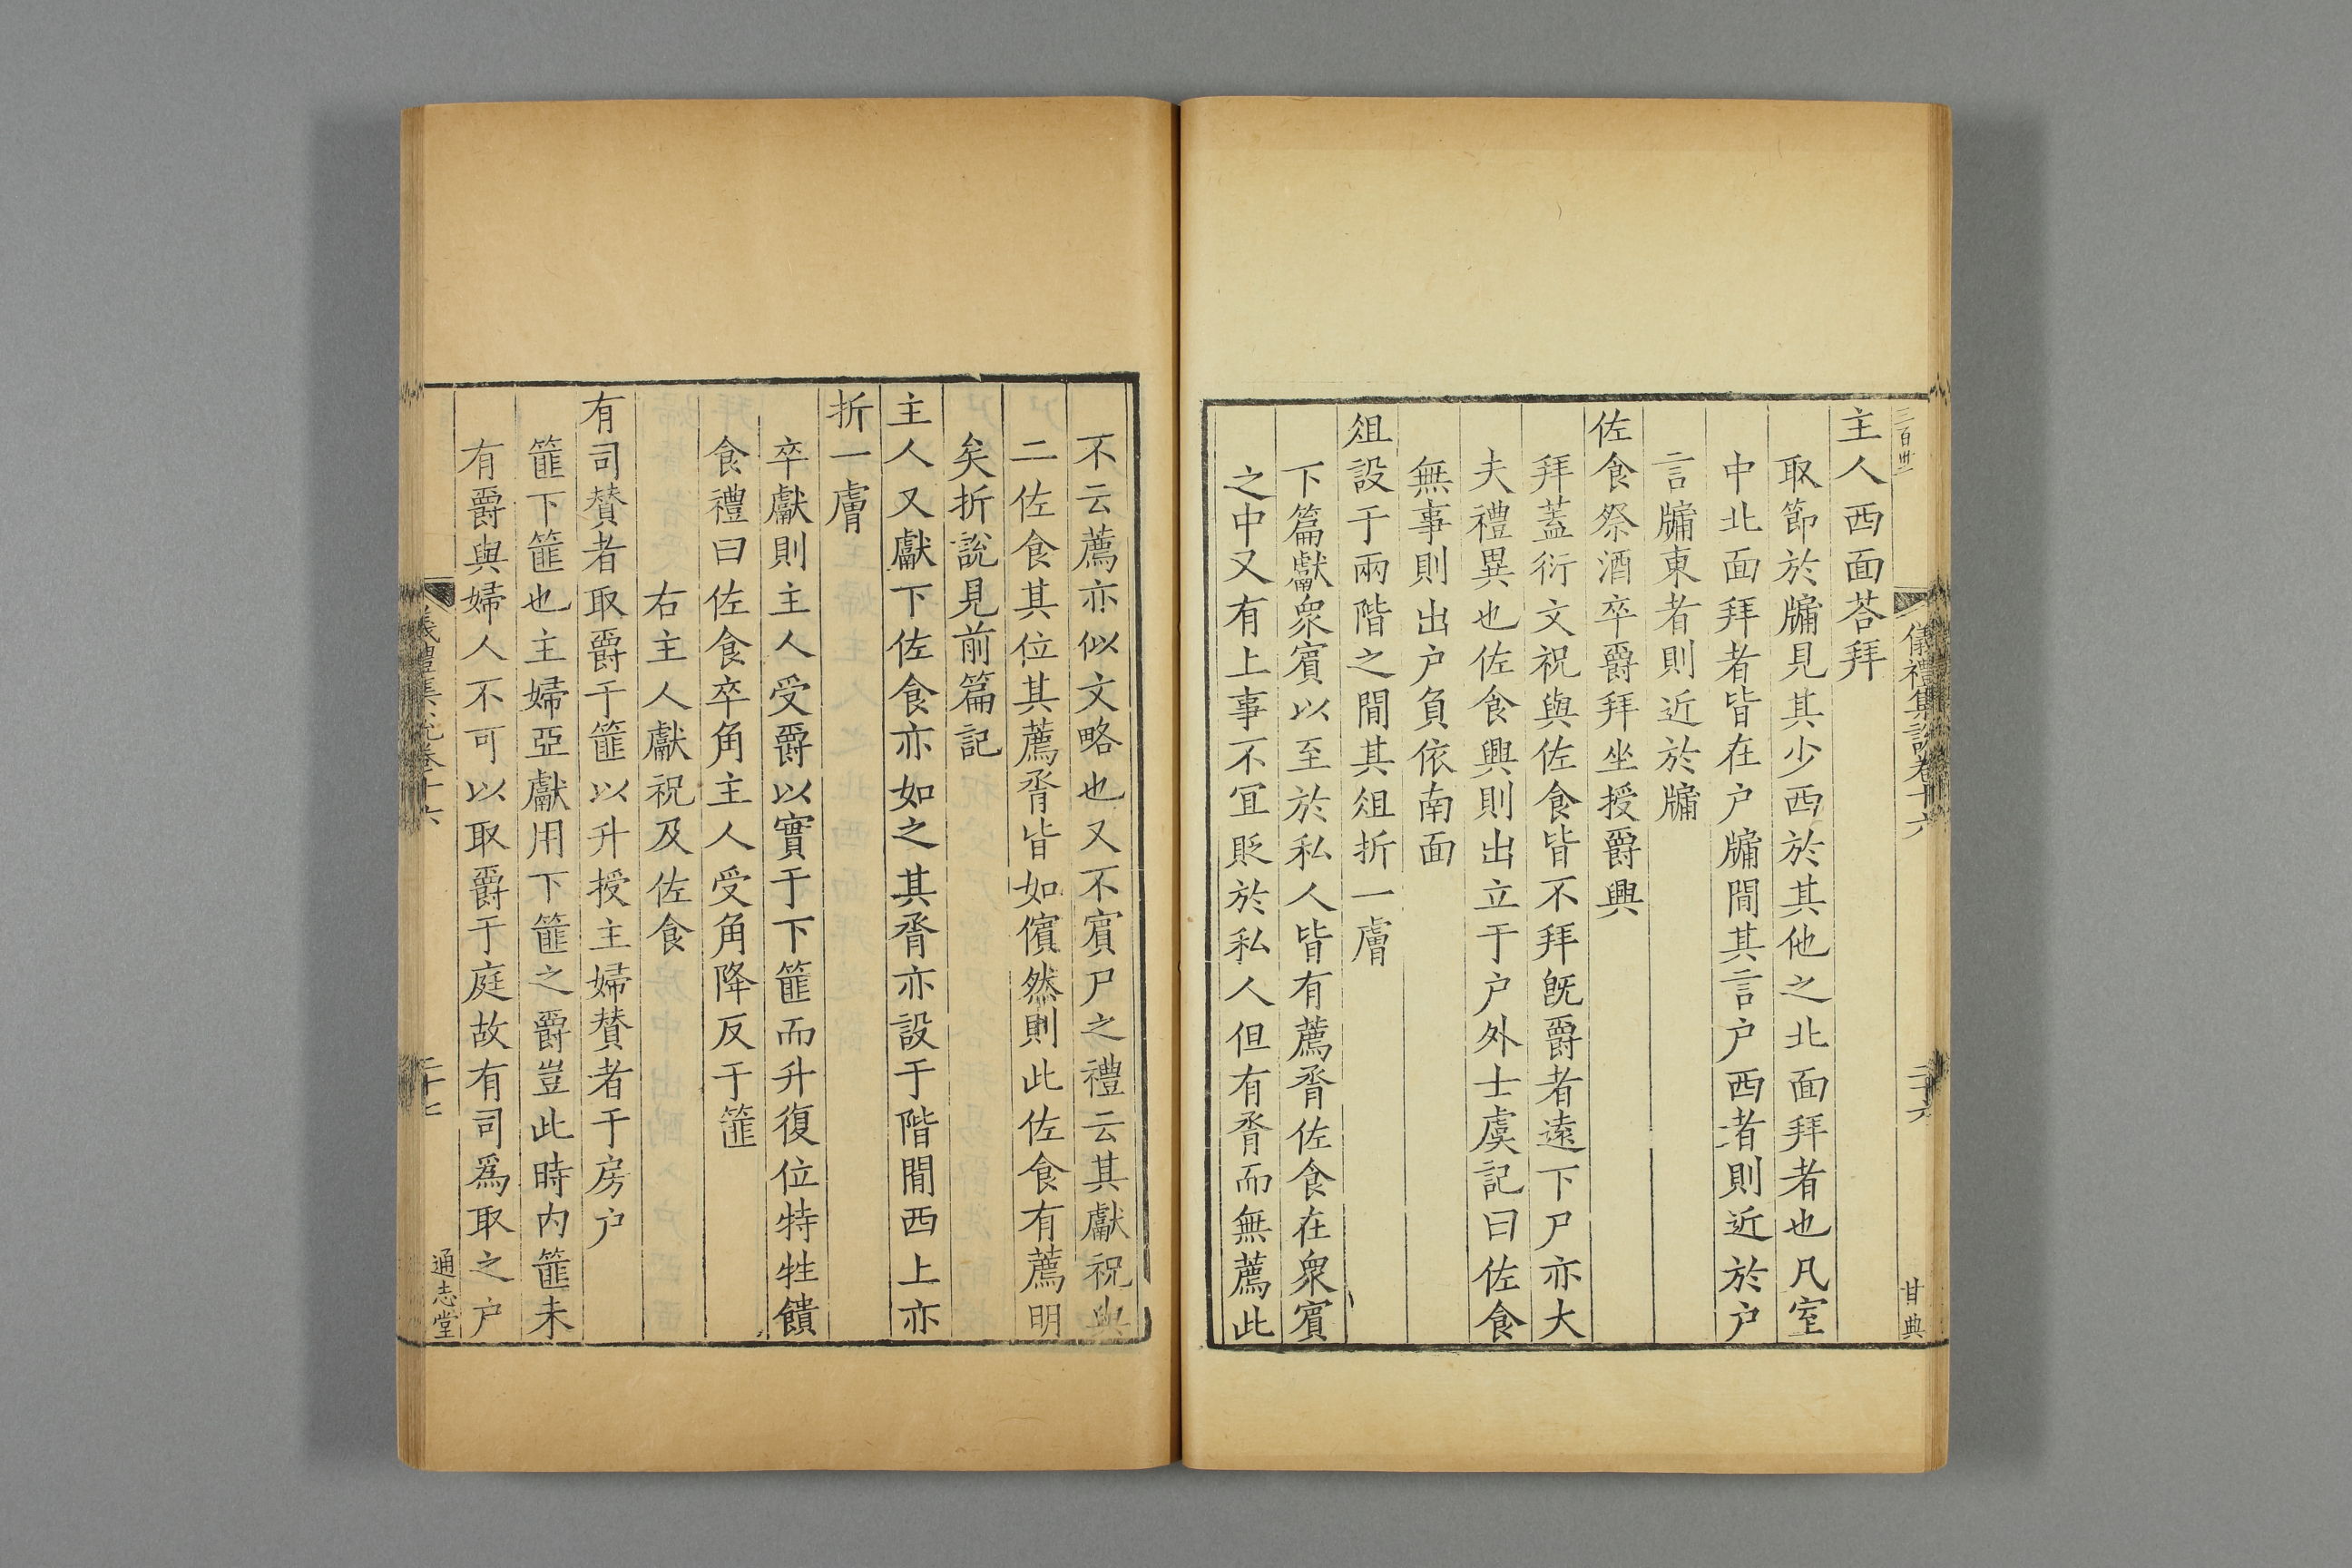 三百卅一
儀禮集說卷十六
二十六
甘典
主人西面荅拜
取節於牖見其少西於其他之北面拜者也凡室
中北面拜者皆在户牖間其言户西者則近於户
言牖東者則近於牖
佐食祭酒卒爵拜坐授爵興
拜蓋衍文祝與佐食皆不拜旣爵者遠下尸亦大
夫禮異也佐食興則出立于户外士虞記曰佐食
無事則出户負依南面
俎設于兩階之間其俎折一膚
下篇獻衆賔以至於私人皆有薦脀佐食在衆賔
之中又有上事不宜貶於私人但有脀而無薦此
不云薦亦似文略也又不賔尸之禮云其獻祝與
二佐食其位其薦脀皆如儐然則此佐食有薦明
矣折說見前篇記
主人又獻下佐食亦如之其脀亦設于階間西上亦
折一膚
卒獻則主人受爵以實于下篚而升復位特牲饋
食禮曰佐食卒角主人受角降反于篚
右主人獻祝及佐食
有司賛者取爵于篚以升授主婦賛者于房户
篚下篚也主婦亞獻用下篚之爵豈此時内篚未
有爵與婦人不可以取爵于庭故有司爲取之户
儀禮集說卷十六
二十七
通志堂